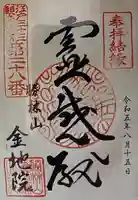 奉拝結縁
令和五年八月十五日
靈感殿
勝林山
第二十八番
金地院